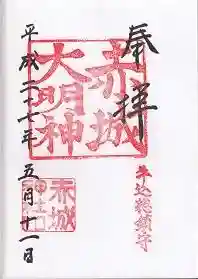 奉拝
赤城
大明神
牛込総鎮守
平成二十七年五月十一日
赤城
神社